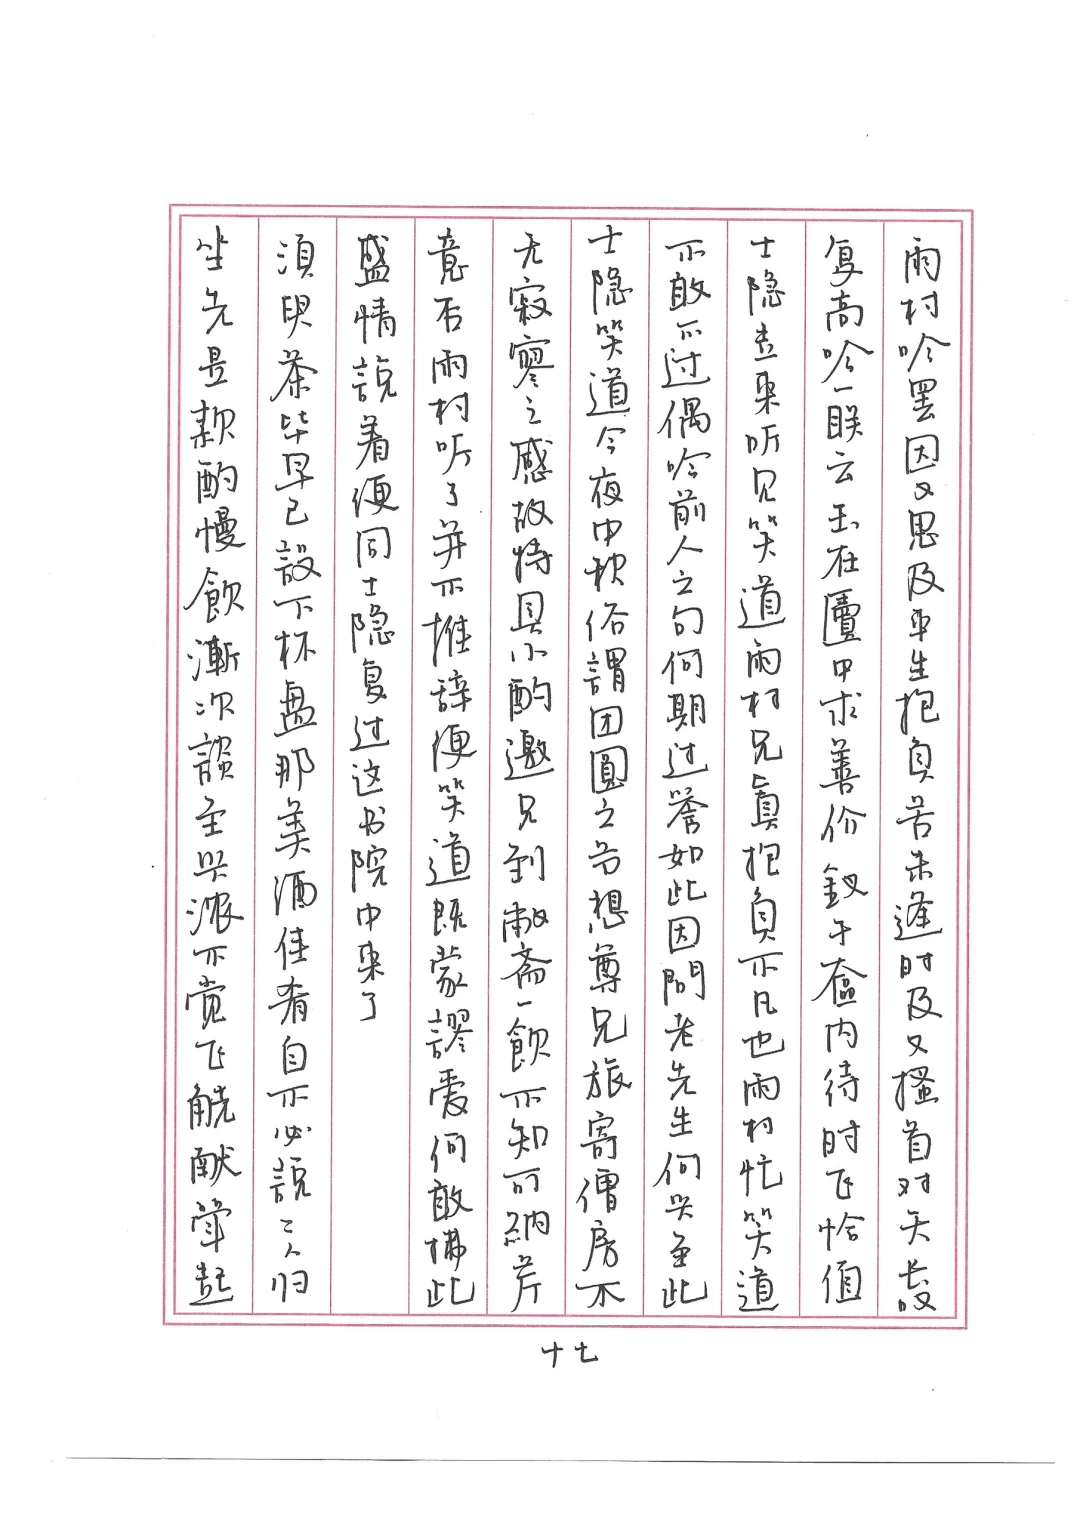 雨村吟罢因又思及平生抱负苦未逢时及又搔首对天长叹
复高吟一联云玉在匵中求善价釵于奩内待时飞恰值
士隐走来听见笑道雨村兄真抱负不凡也雨村忙笑道
不敢不过偶吟前人之句何期过誉如此因問老先生何兴至此
士隐笑道今夜中秋俗謂团圆之节想尊兄旅寄僧房不
无寂寥之感故特具小酌邀兄到敝斋一飲不知可納芹
意否雨村听了并不推辞便笑道既蒙謬爱何敢拂此
盛情説着便同士隐复过这书院中来了
須臾茶毕早已設下杯盘那美酒佳肴自不必説二人归
坐先是款酌慢飲漸次談至兴浓不觉飞觥献斝起
十七